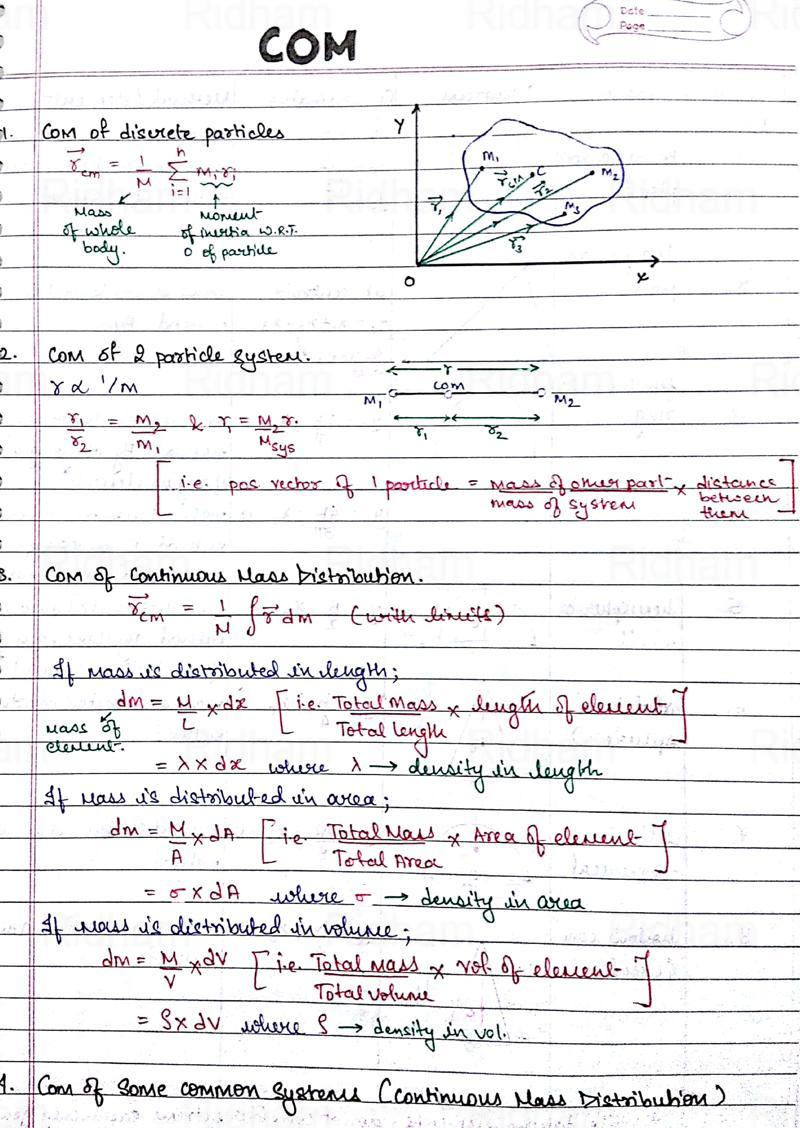 Date
Page
COM
1. COM of discrete particles
r⃗cm = 1/M Σ(i=1 to n) miri
Mass of whole body.
Moment of inertia W.R.T. O of particle
Y
M1
r⃗cm
C
r⃗2
M2
r⃗1
M3
r⃗3
O
X
2. COM of 2 particle system.
r ∝ 1/M
r1/r2 = M2/M1 & r1 = M2r/Msys.
r
M1
COM
M2
r1
r2
[i.e. pos vector of 1 particle = mass of other part/mass of system × distance between them]
3. COM of Continuous Mass Distribution.
r⃗cm = 1/M ∫ r⃗ dm (with limits)
If Mass is distributed in length;
dm = M/L × dx [i.e. Total Mass/Total length × length of element]
Mass of element.
= λ × dx where λ → density in length
If Mass is distributed in area;
dm = M/A × dA [i.e. Total Mass/Total Area × Area of element]
= σ × dA where σ → density in area
If Mass is distributed in volume;
dm = M/V × dV [i.e. Total Mass/Total volume × vol. of element]
= ρ × dV where ρ → density in vol.
4. COM of Some common systems (Continuous Mass Distribution)
Ridham